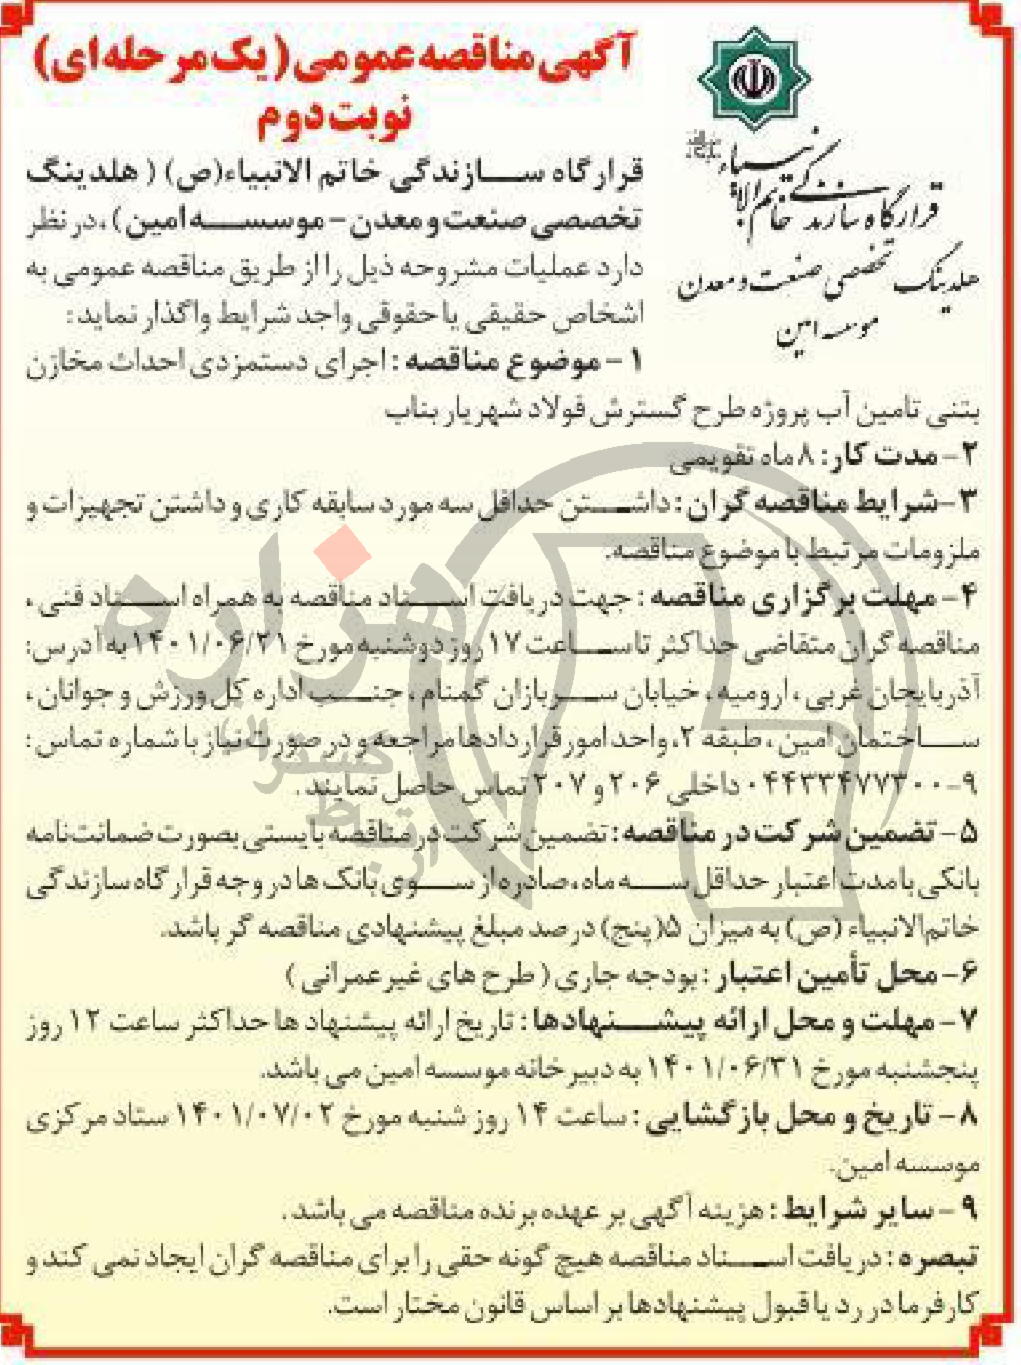 آگهی مناقصه عمومی (یک مرحله‌ای)
نوبت دوم
قرارگاه سازندگی خاتم الانبیاء
هلدینگ تخصصی صنعت و معدن
موسسه امین
قرارگاه سازندگی خاتم الانبیاء(ص) (هلدینگ
تخصصی صنعت و معدن - موسسه امین)، در نظر
دارد عملیات مشروحه ذیل را از طریق مناقصه عمومی به
اشخاص حقیقی یا حقوقی واجد شرایط واگذار نماید:
۱- موضوع مناقصه: اجرای دستمزدی احداث مخازن
بتنی تامین آب پروژه طرح گسترش فولاد شهریار بناب
۲- مدت کار: ۸ ماه تقویمی
۳- شرایط مناقصه گران: داشتن حداقل سه مورد سابقه کاری و داشتن تجهیزات و
ملزومات مرتبط با موضوع مناقصه.
۴- مهلت برگزاری مناقصه: جهت دریافت اسناد مناقصه به همراه اسناد فنی،
مناقصه گران متقاضی حداکثر تا ساعت ۱۷ روز دوشنبه مورخ ۱۴۰۱/۰۶/۲۱ به آدرس:
آذربایجان غربی، ارومیه، خیابان سربازان گمنام، جنب اداره کل ورزش و جوانان،
ساختمان امین، طبقه ۲، واحد امور قراردادها مراجعه و در صورت نیاز با شماره تماس:
۹-۰۴۴۳۳۴۷۷۳۰۰ داخلی ۲۰۶ و ۲۰۷ تماس حاصل نمایند.
۵- تضمین شرکت در مناقصه: تضمین شرکت در مناقصه بایستی بصورت ضمانت‌نامه
بانکی با مدت اعتبار حداقل سه ماه، صادره از سوی بانک ها در وجه قرارگاه سازندگی
خاتم الانبیاء (ص) به میزان ۵(پنج) درصد مبلغ پیشنهادی مناقصه گر باشد.
۶- محل تأمین اعتبار: بودجه جاری (طرح های غیرعمرانی)
۷- مهلت و محل ارائه پیشنهادها: تاریخ ارائه پیشنهاد ها حداکثر ساعت ۱۲ روز
پنجشنبه مورخ ۱۴۰۱/۰۶/۳۱ به دبیرخانه موسسه امین می باشد.
۸- تاریخ و محل بازگشایی: ساعت ۱۴ روز شنبه مورخ ۱۴۰۱/۰۷/۰۲ ستاد مرکزی
موسسه امین.
۹- سایر شرایط: هزینه آگهی بر عهده برنده مناقصه می باشد.
تبصره: دریافت اسناد مناقصه هیچ گونه حقی را برای مناقصه گران ایجاد نمی کند و
کارفرما در رد یا قبول پیشنهادها بر اساس قانون مختار است.
هزاره